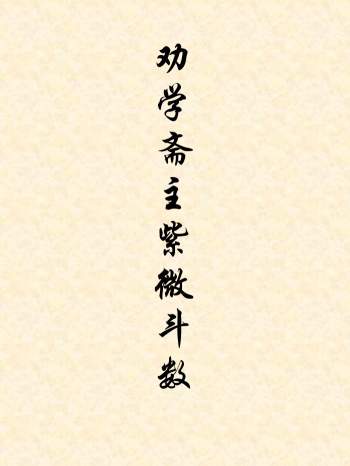 劝学斋主紫微斗数